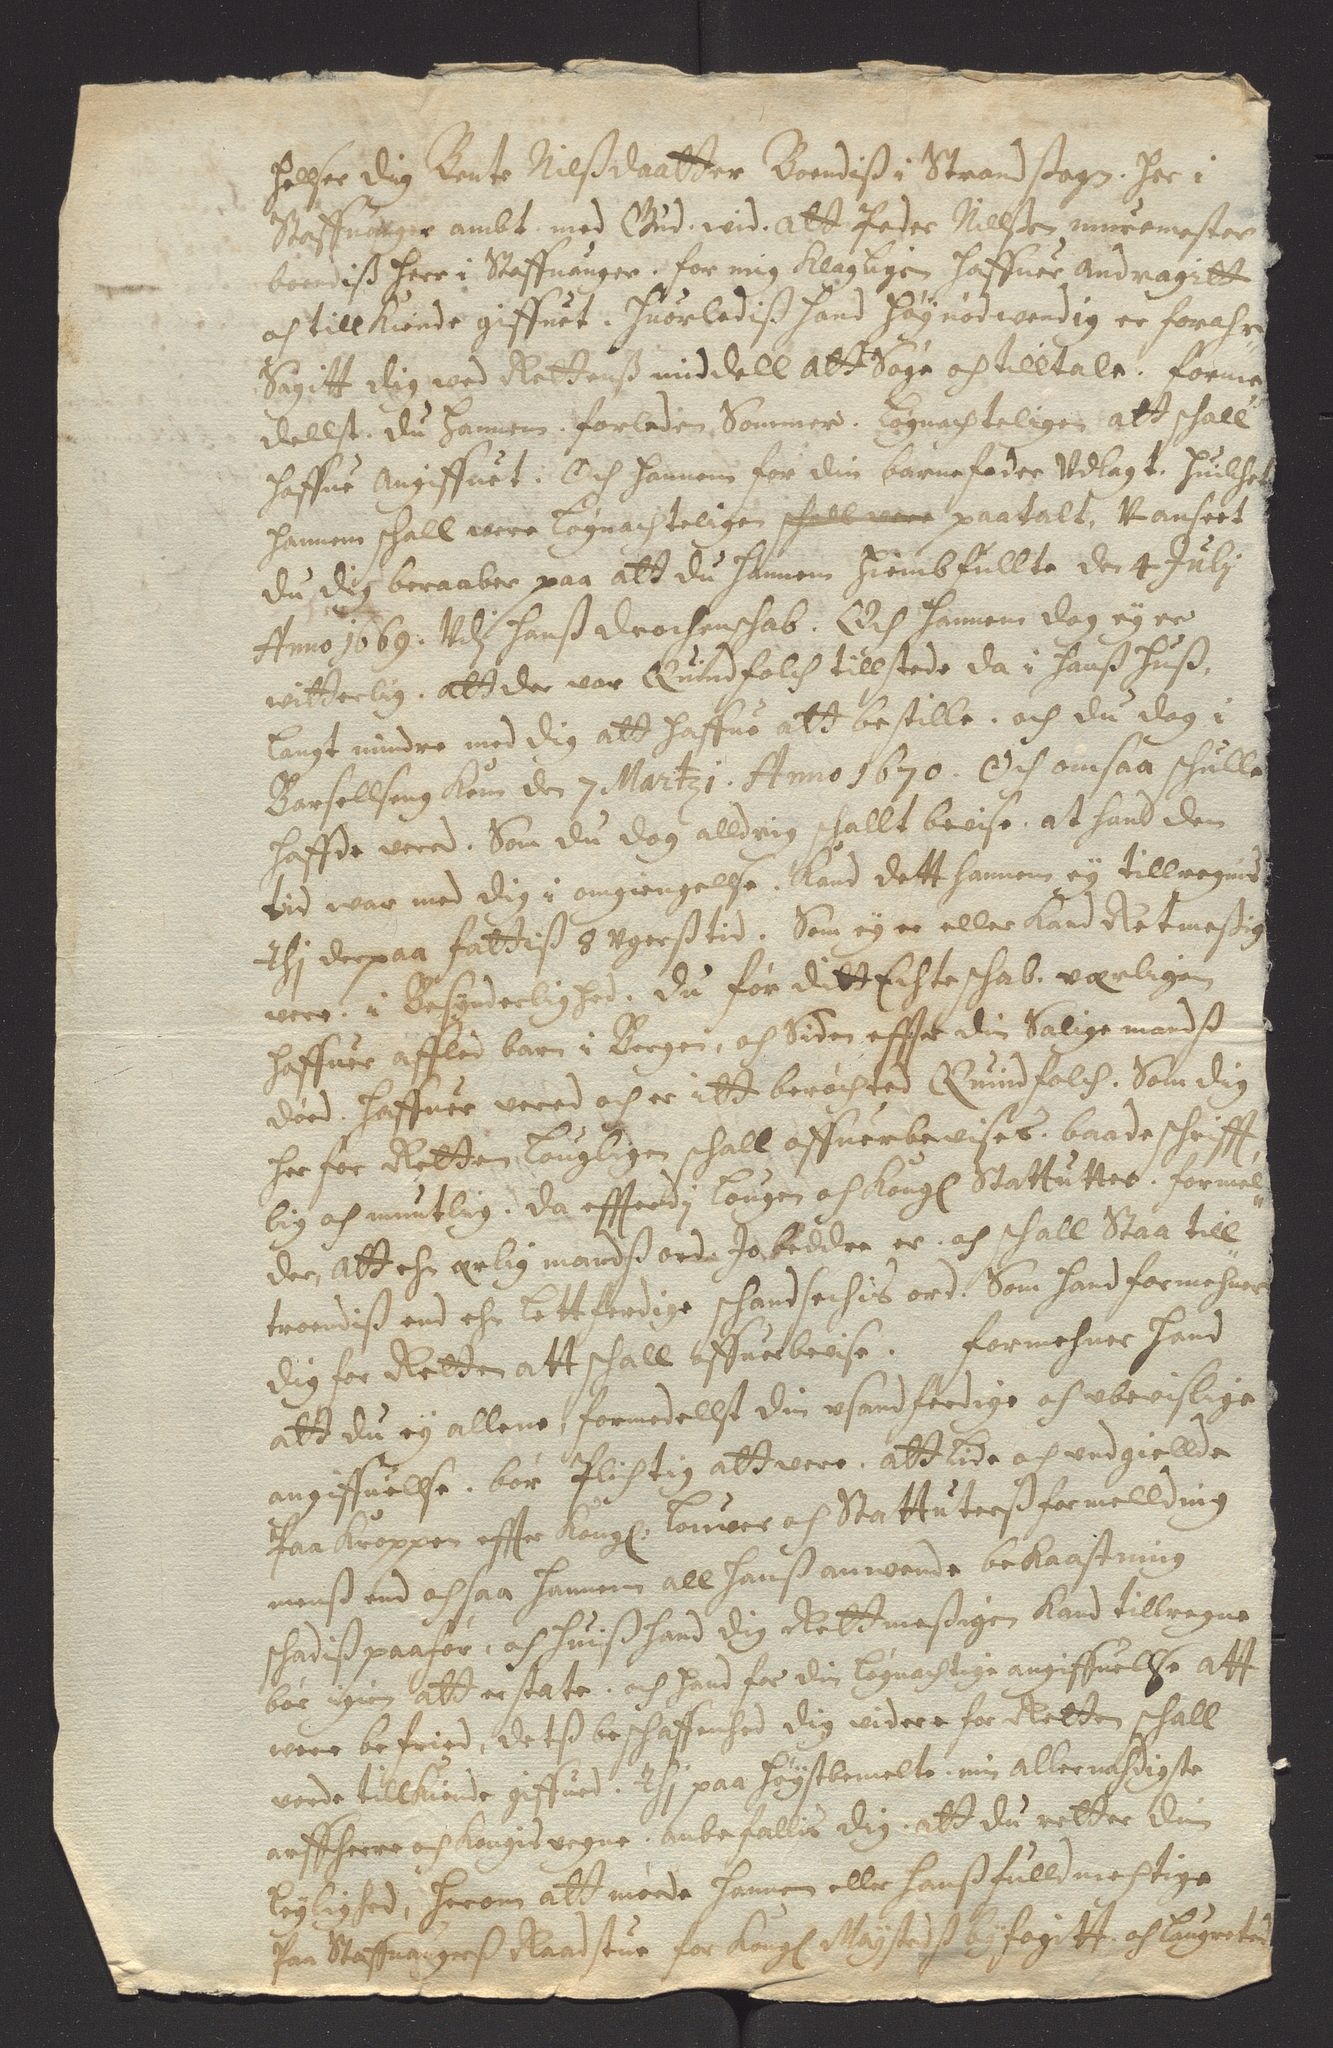 Hellser dig Bente Nilßdaatter Boendiß i Strandsogn. Her i
Staffuanger ambt. med Gud. vid. att Peder Nillßen muremester
boendiß herr i Staffuanger. for mig klagligen haffuer andragitt
och till kiende giffuet. huorlediß hand høynødvendig er forahr¬
Sagitt dig ved Rettenß middell att Søge och tilltale. forme¬
dellst. du hannem. forleden Sommer. løgnachteligen att schall
haffue angiffuet. Och hannem for din barnefader Vdlagt. huilchet
hannem schall vere løgnachteligen schall vere paatalt, Vanseet
du dig beraaber paa att du hannem hiembfullte den 4 Julj
Anno 1669. Vdj hanß druchenschab. Och hannem dog ey er
vitterlig. att der var Quindfolch tillstede da i hanß huß.
langt mindre med dig att haffue att bestille. och du dog i
Barsellseng kom den 7 Martzi. Anno 1670. Och omsaa schulle
haffde vered. Som du dog alldrig schallt bevise. at hand den
tid war med dig i omgiengellse. kand dett hannem ey tillregnis
Thj derpaa fattiß 8 Vgerß tid. Som ey er eller kand Retmeßig
vere. i Besynderlighed. du før ditt Echteschab. værligen
haffuer affled barn i Bergen, och Siden effter din Salige mandß
døed. haffuer vered och er itt berøchted Quindfolch. Som dig
her for Retten lougligen schall offuerbevises. baade schrifft¬
lig och muntlig. da effterdj lougen och kongl Stattutter. formel¬
der, att ehn ærlig mandß ord Jo beddre er. och schall Staa till
troendiß end ehn lettferdige schandsechis ord. Som hand formehner
dig for Retten att schall offuerbevise. formehner hand
att du ey allene, formedellst din vsandferdige och vbevislige
angiffuellse. bør Plichtig att vere. att lide och vndgiellde
Paa kroppen effter kongl. Louer och Stattuterß formellding
menß end ochsaa hannem all hanß anvende bekaastning
schadißpaafør, och huiß hand dig Rettmeßigen kand tillregne
bør igien att erstate. och hand for din løgnachtige angiffuellse att
vere befried, detß beschaffenhed dig videre for Retten schall
vorde tillkiende giffued. Thj paa høystbemelte. min allernaadigste
arffherre och kongis vegne. anbefallis dig. att du retter din
leylighed, herom att møede hannem eller hanß fulldmechtige
Paa Staffuangerß Raadstue for kongl Mayestedß byfogitt. och laugretted